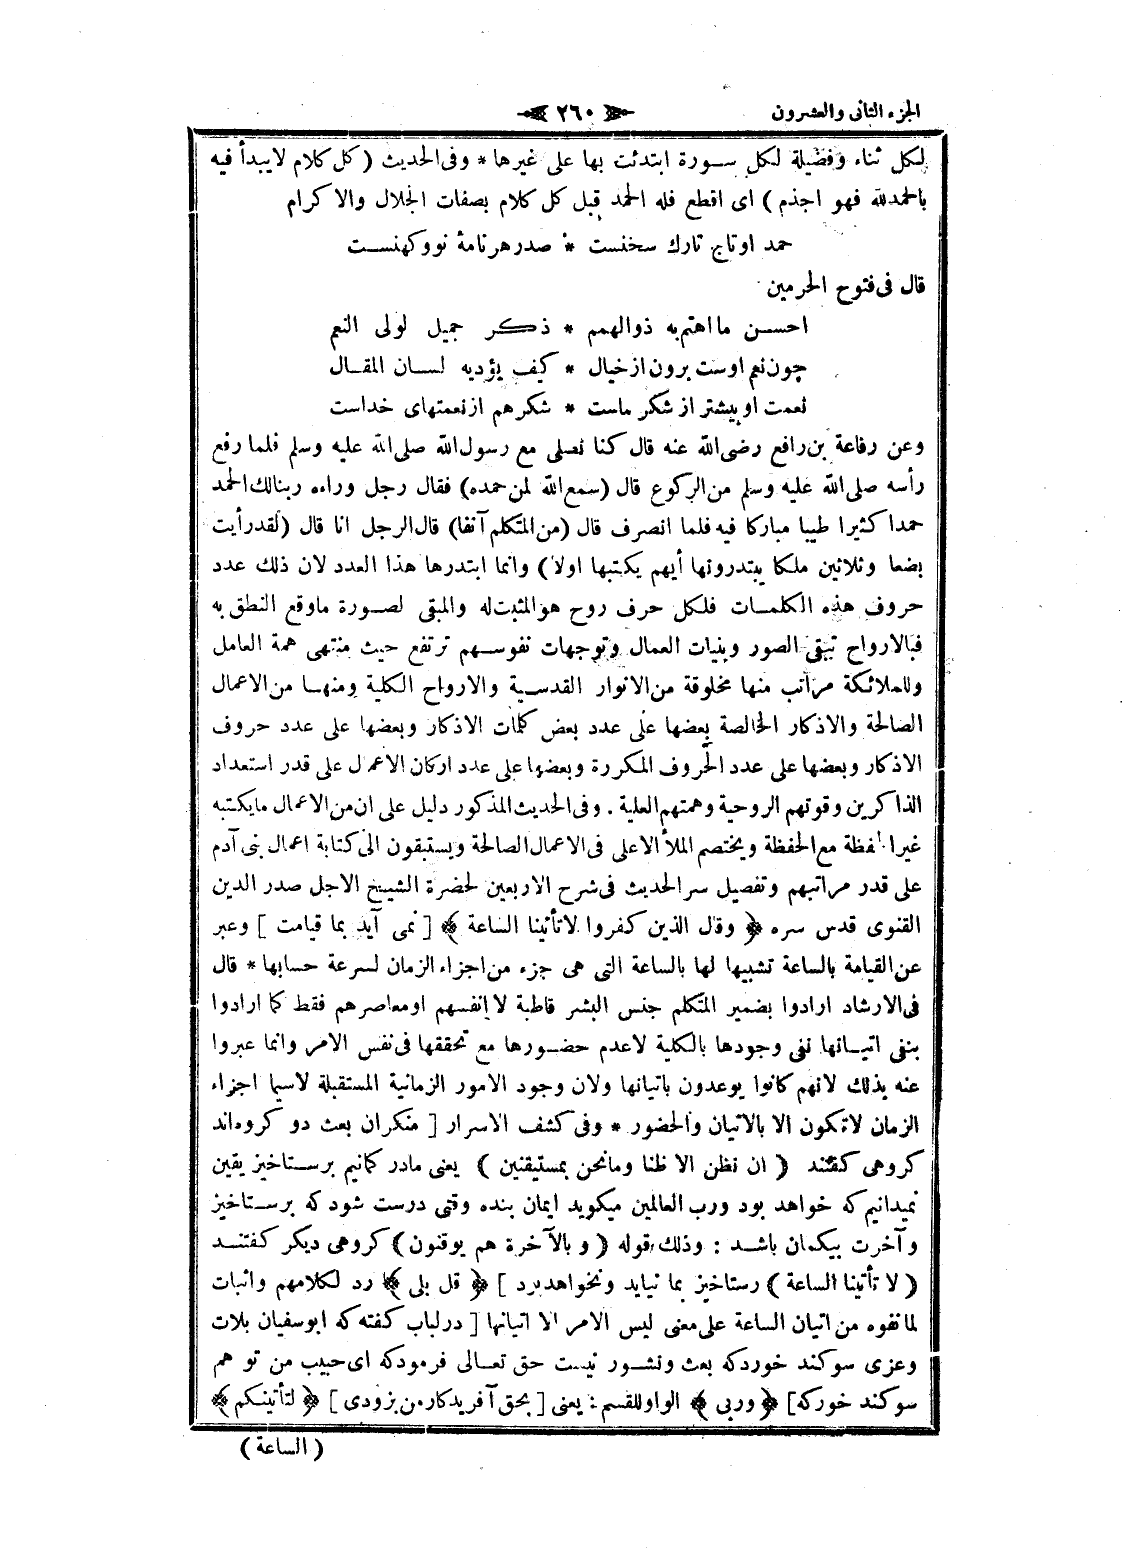 الجزء الثانى والعشرون
٢٦٠
لكل ثناء وفضيلة لكل سورة ابتدئت بها على غيرها * وفى الحديث (كل كلام لايبدأ فيه
بالحمدلله فهو اجذم) اى اقطع فله الحمد قبل كل كلام بصفات الجلال والاكرام
حمد اوتاج تارك سخنست * صدرهرنامهٔ نووكهنست
قال فى فتوح الحرمين
احسن مااهتم به ذوالهمم * ذكر جميل لولى النعم
چون نعم اوست برون ازخيال * كيف يؤديه لسان المقال
نعمت اوبيشتر از شكر ماست * شكرهم ازنعمتهاى خداست
وعن رفاعة بن رافع رضى الله عنه قال كنا نصلى مع رسول الله صلى الله عليه وسلم فلما رفع
رأسه صلى الله عليه وسلم من الركوع قال (سمع الله لمن حمده) فقال رجل وراءه ربنالك الحمد
حمدا كثيرا طيبا مباركا فيه فلما انصرف قال (من المتكلم آنفا) قال الرجل انا قال (لقدرأيت
بضعا وثلاثين ملكا يبتدرونها أيهم يكتبها اولا) وانما ابتدرها هذا العدد لان ذلك عدد
حروف هذه الكلمات فلكل حرف روح هو المثبت له والمبقى لصورة ماوقع النطق به
فبالارواح تبقى الصور وبنيات العمال وتوجهات نفوسهم ترتفع حيث منتهى همة العامل
وللملائكة مراتب منها مخلوقة من الانوار القدسية والارواح الكلية ومنها من الاعمال
الصالحة والاذكار الخالصة بعضها على عدد بعض كلمات الاذكار وبعضها على عدد حروف
الاذكار وبعضها على عدد الحروف المكررة وبعضها على عدد اركان الاعمال على قدر استعداد
الذاكرين وقوتهم الروحية وهمتهم العلية . وفى الحديث المذكور دليل على ان من الاعمال مايكتبه
غير الحفظة مع الحفظة ويختصم الملأ الاعلى فى الاعمال الصالحة ويستبقون الى كتابة اعمال بنى آدم
على قدر مراتبهم وتفصيل سر الحديث فى شرح الاربعين لحضرة الشيخ الاجل صدر الدين
القنوى قدس سره ﴿ وقال الذين كفروا لاتأتينا الساعة ﴾ [ نمى آيد بما قيامت ] وعبر
عن القيامة بالساعة تشبيها لها بالساعة التى هى جزء من اجزاء الزمان لسرعة حسابها * قال
فى الارشاد ارادوا بضمير المتكلم جنس البشر قاطبة لا انفسهم اومعاصرهم فقط كما ارادوا
بنفى اتيانها نفى وجودها بالكلية لاعدم حضورها مع تحققها فى نفس الامر وانما عبروا
عنه بذلك لانهم كانوا يوعدون باتيانها ولان وجود الامور الزمانية المستقبلة لاسيما اجزاء
الزمان لاتكون الا بالاتيان والحضور * وفى كشف الاسرار [ منكران بعث دو كروه اند
كروهى كفتند ( ان نظن الا ظنا ومانحن بمستيقنين ) يعنى مادر كمانيم برستاخيز يقين
نميدانيم كه خواهد بود ورب العالمين ميكويد ايمان بنده وقتى درست شود كه برستاخيز
وآخرت بيكمان باشد : وذلك قوله ( وبالآخرة هم يوقنون ) كروهى ديكر كفتند
( لا تأتينا الساعة ) رستاخيز بما نيايد ونخواهدبرد ] ﴿ قل بلى ﴾ رد لكلامهم واثبات
لمانفوه من اتيان الساعة على معنى ليس الامر الا اتيانها [ درلباب كفته كه ابوسفيان بلات
وعزى سوكند خوردكه بعث ونشور نيست حق تعالى فرمودكه اى حبيب من تو هم
سوكند خوركه] ﴿ وربى ﴾ الواو للقسم : يعنى [ بحق آفريدكار من بزودى ] ﴿ لتأتينكم ﴾
( الساعة )